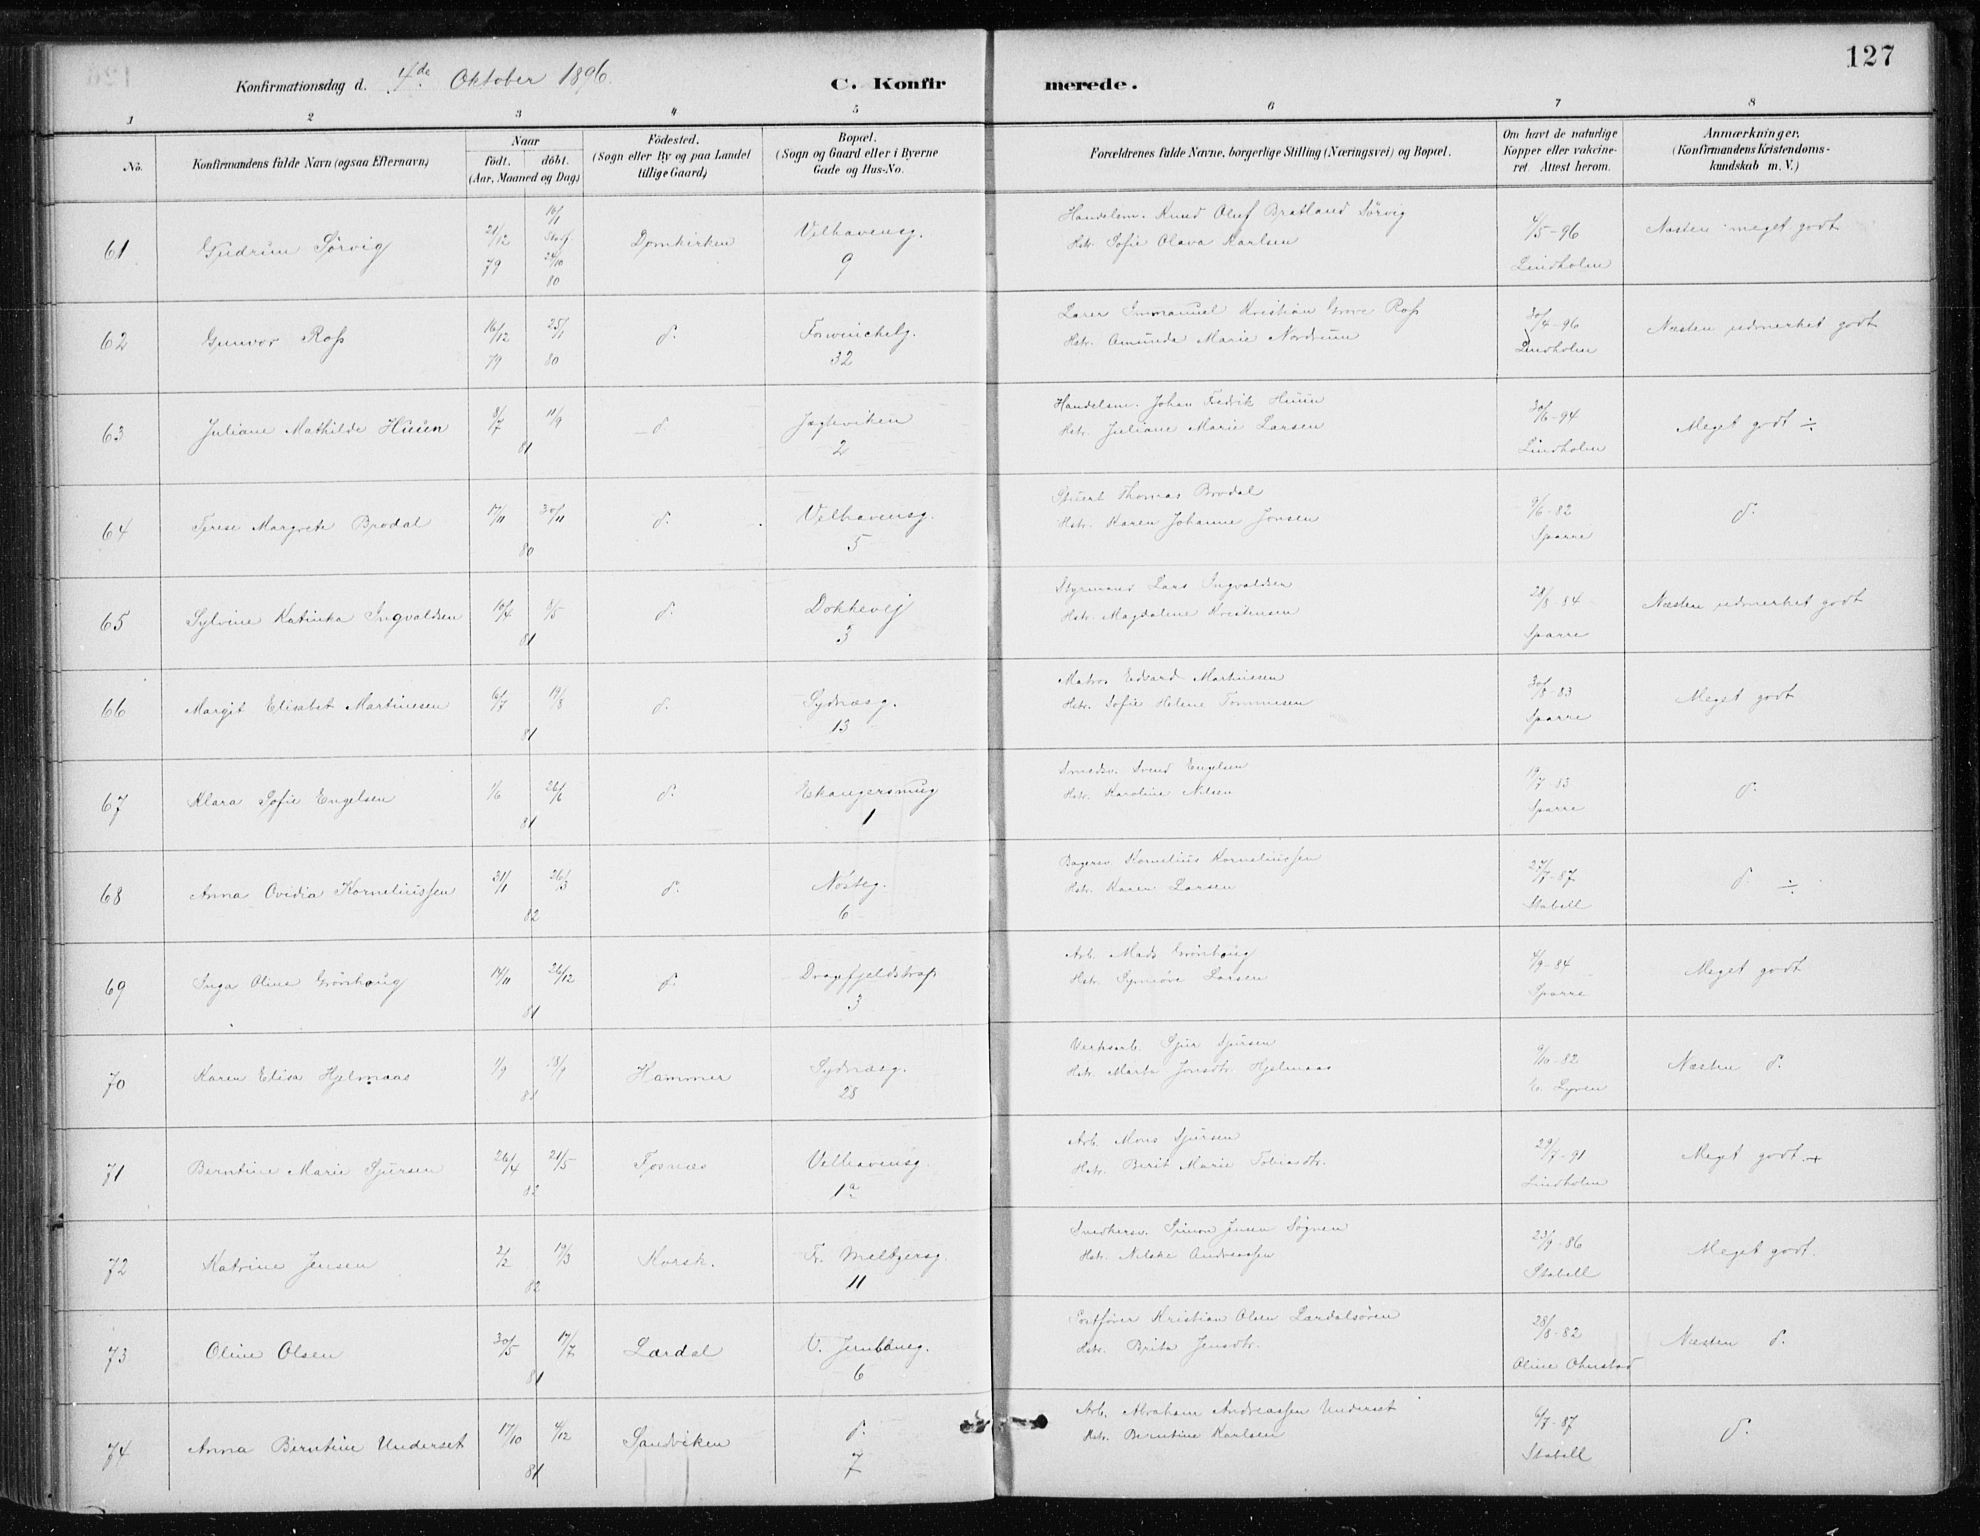 127
Konfirmationsdag d. 4de Oktober 1896.
C. Konfirmerede.
1 2 3 4 5 6 7 8
No.
Konfirmandens fulde Navn (ogsaa Efternavn)
Naar
födt. döbt.
(Aar, Maaned og Dag)
Födested.
(Sogn eller By og paa Landet
tillige Gaard)
Bopæl.
(Sogn og Gaard eller i Byerne
Gade og Hus-No.
Forældrenes fulde Navne, borgerlige Stilling (Næringsvei) og Bopæl.
Om havt de naturlige
Kopper eller vakcine-
ret. Attest herom.
Anmærkninger.
(Konfirmandens Kristendoms-
kundskab m. V.)
61 Gudrun Sørvig 21/12 79 16/1 Stadf. 24/10 80 Domkirken Velhavensg. 9
Handelsm. Knud Oluf Bratland Sörvig
Hstr. Sofie Olava Karlsen
4/5-96 Lindholm Næsten meget godt
62 Gunvor Ross 16/12 79 25/1 80 d. Forwinchelg. 32
Lærer Immanuel Kristian Grove Ross
Hstr. Amunda Marie Nordrum
30/4-96 Lindholm Næsten udmerket godt
63 Juliane Mathilde Huun 8/7 11/9 81 d. Jagteviken 2
Handelsm. Johan Fredrik Huun
Hstr. Juliane Marie Larsen
30/6-94 Lindholm Meget godt ÷
64 Terese Margrete Brodal 17/11 30/11 80 d. Velhavensg. 5
Stuert Thomas Brodal
Hstr. Karen Johanne Jonsen
9/6-82 Sparre d.
65 Sylvine Katinka Ingvaldsen 10/4 8/5 81 d. Dokkevej 3
Styrmand Lars Ingvaldsen
Hstr. Magdalene Kristensen
28/8-84 Sparre Næsten udmerket godt
66 Margit Elisabet Martinesen 6/7 19/8 81 d. Sydnæsg. 13
Matros Edvard Martinesen
Hstr. Sofie Helene Tommesen
30/8-83 Sparre Meget godt
67 Klara Sofie Engelsen 1/6 26/6 81 d. Ekangersmug 1
Smedsv. Svend Engelsen
Hstr. Karoline Nilsen
19/7-83 Sparre d.
68 Anna Ovidia Korneliussen 31/1 26/3 82 d. Nösteg. 6
Bagersv. Kornelius Korneliussen
Hstr. Karen Larsen
27/7-87 Stabell d. ÷
69 Inga Oline Grönhaug 14/11 26/12 81 d. Dragefjeldstrap. 3
Arb. Mads Grönhaug
Hstr. Synnöve Larsen
4/9-84 Sparre Meget godt
70 Karen Elisa Hjelmaas 1/9 18/9 81 Hammer Sydnæsg. 28
Verksarb. Sjur Sjursen
Hstr. Marta Jonsdtr. Hjelmaas
9/10-82 E. Lyren Næsten d.
71 Berntine Marie Sjursen 26/4 21/5 82 Fosnæs Velhavensg. 1a
Arb. Mons Sjursen
Hstr. Berit Marie Tobiasdtr.
29/7-91 Lindholm Meget godt. +
72 Katrine Jensen 2/2 19/3 82 Korsk. Fr. Meltzersg. 11
Snedkersv. Simon Jensen Sögnen
Hstr. Nilske Andreassen
23/9-86 Stabell Meget godt.
73 Oline Olsen 30/5 17/7 81 Lærdal V. Jernbaneg. 6
Postförer Kristian Olsen Lærdalsören
Hstr. Brita Jensdtr.
28/8-82 Oline Ohnstad Næsten d.
74 Anna Berntine Underset 17/10 4/12 81 Sandviken d. 7
Arb. Abraham Andreassen Underset
Hstr. Berntine Karlsen
6/7-87 Stabell d.